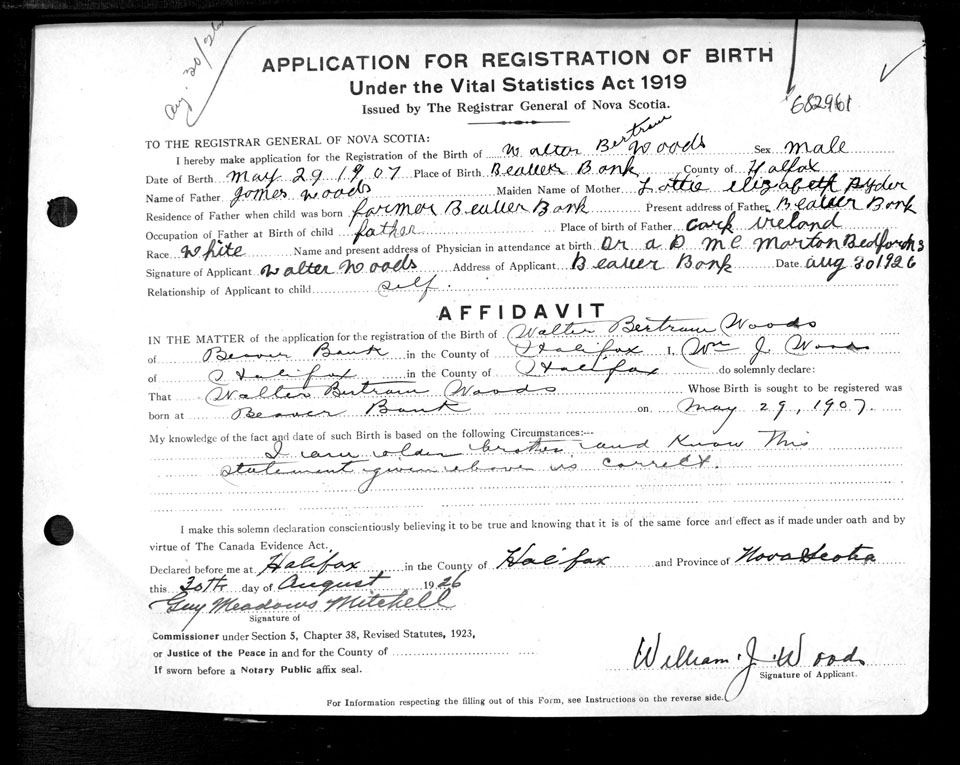 Aug. 20/26
APPLICATION FOR REGISTRATION OF BIRTH
Under the Vital Statistics Act 1919
Issued by The Registrar General of Nova Scotia.
682961
TO THE REGISTRAR GENERAL OF NOVA SCOTIA:
I hereby make application for the Registration of the Birth of Walter Bertram Woods Sex Male
Date of Berth May 29 1907 Place of Birth Beauer Bank County of Halfax
Name of Father James Woods Maiden Name of Mother Lottie elizabeth Ryder
Residence of Father when child was born farmor Beauer Bank Present address of Father Beauer Bank
Occupation of Father at Birth of child father Place of birth of Father Cork ireland
Race White Name and present address of Physician in attendance at birth Dr a D Mc Marton Bedford NS
Signature of Applicant Walter Woods Address of Applicant Beauer Bank Date aug 30 1926
Relationship of Applicant to child self.
AFFIDAVIT
IN THE MATTER of the application for the registration of the Birth of Walter Bertram Woods
of Beaver Bank in the County of Halifax I, Wm J. Woods
of Halifax in the County of Halifax do solemnly declare:
That Walter Bertram Woods Whose Birth is sought to be registered was
born at Beaver Bank on May 29, 1907.
My knowledge of the fact and date of such Birth is based on the following Circumstances:--
I am older brother and Know This
statement given above is correct.
I make this solemn declaration conscientiously believing it to be true and knowing that it is of the same force and effect as if made under oath and by
virtue of The Canada Evidence Act.
Declared before me at Halifax in the County of Halifax and Province of Nova Scotia
this 30th day of August 1926
Guy Meadows Mitchell
Signature of
Commissioner under Section 5, Chapter 38, Revised Statutes, 1923,
or Justice of the Peace in and for the County of
If sworn before a Notary Public affix seal.
William J. Woods
Signature of Applicant.
For Information respecting the filling out of this Form, see Instructions on the reverse side.